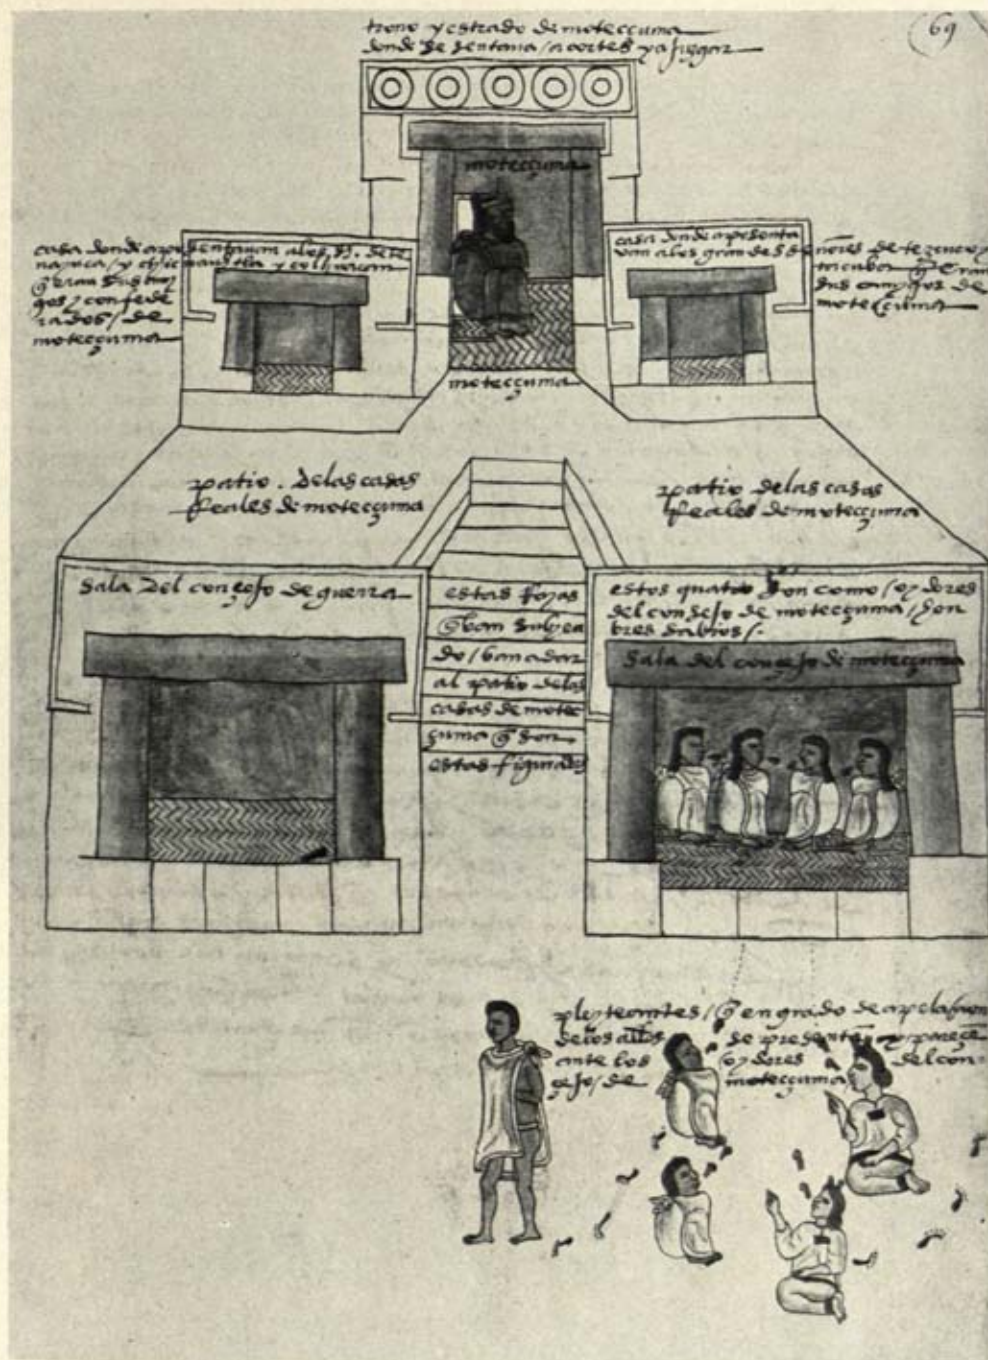 69
trono y estrado de moteccuma
donde se sentava a cortes y a juzgar
moteccuma
casa donde aposentavan a los s. de te
nayuca / y chicnauhtla y colhuacan
q̃ eran sus ami
gos / y confede
rados / de
moteccuma
casa donde aposenta
van a los grandes señores de tezcuco y
tacuba q̃ eran
sus amigos de
moteccuma
moteccuma
patio . de las casas
Reales de moteccuma
patio de las casas
Reales de moteccuma
sala del consejo de guerra
estas Rayas
q̃ van subien
do / van a dar
al patio de las
casas de motec
çuma q̃ son
estas figuradas
estos quatro son como / oydores
del consejo de moteccuma / hon
bres sabios /.
sala del consejo de moteccuma
pleyteantes / q̃ en grado de apelacion
de los allds se presentã y pareçẽ
ante los oydores del con
sejo / de moteccuma